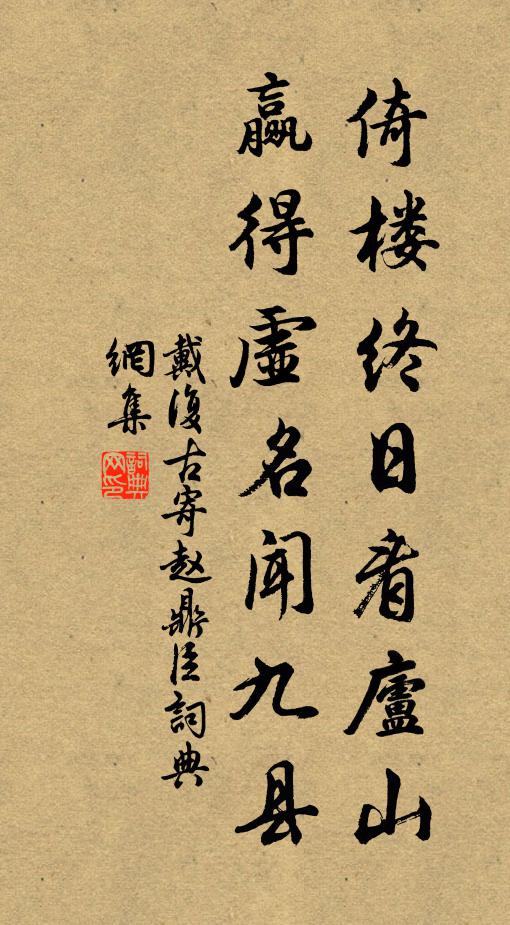 倚楼终日看廬山
赢得虚名闻九县
戴復古寄赵鼎臣詞典
網集
詞典網印